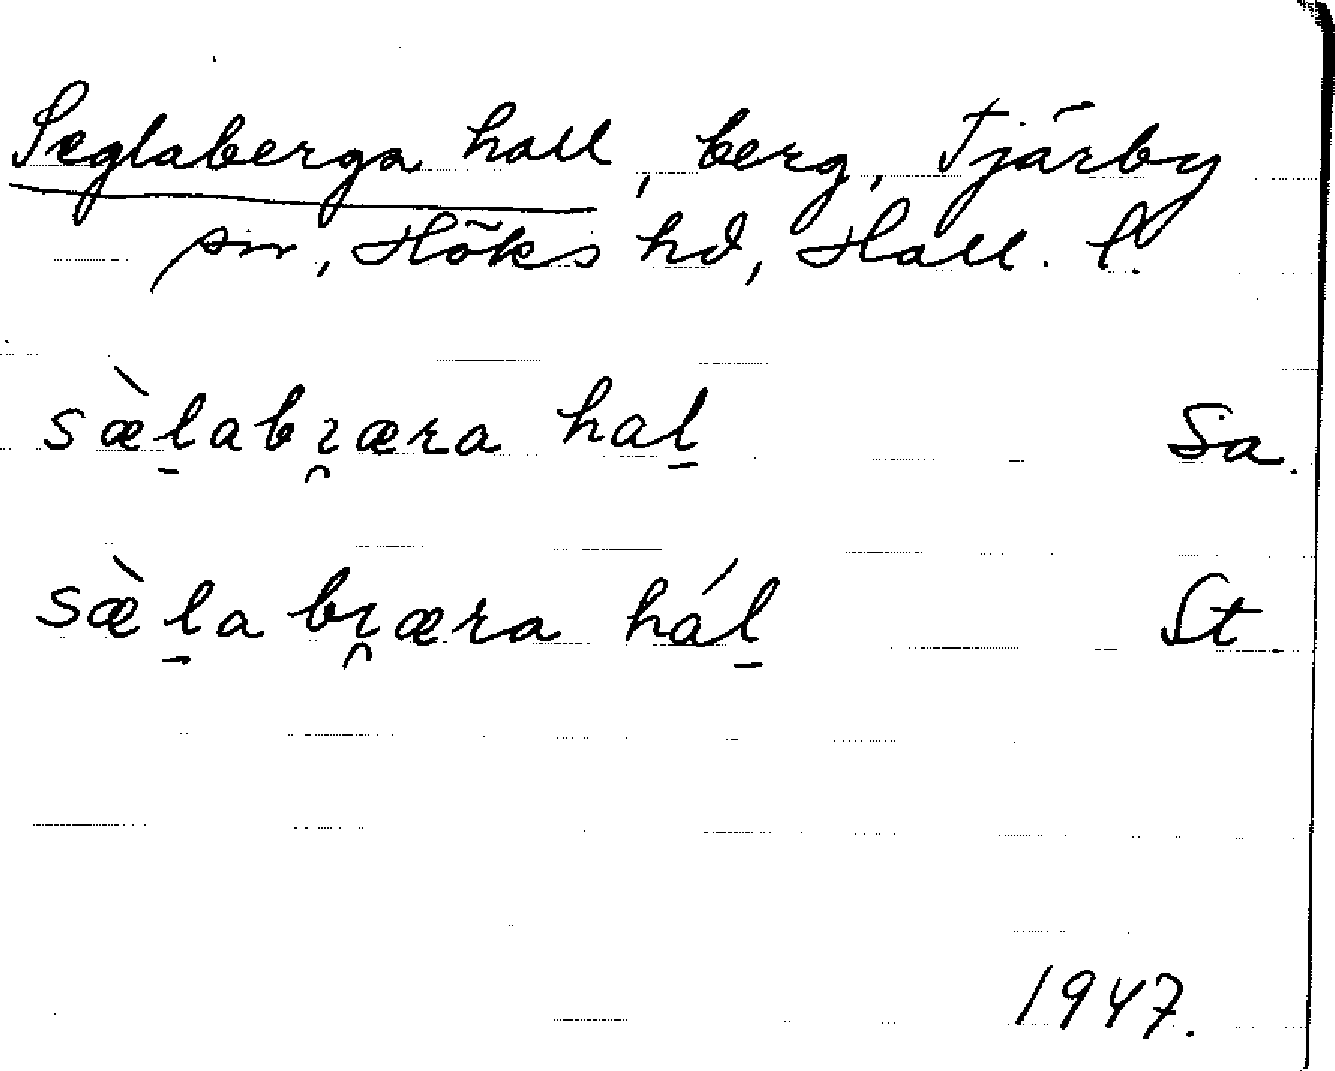 Seglaberga hall, berg, Tjärby
sn, Höks hd, Hall. l.
sæ̀l̠abɪ̯æra hal̠ Sa.
sæ̀l̠a bɪ̯æra hál̠ St.
1947.